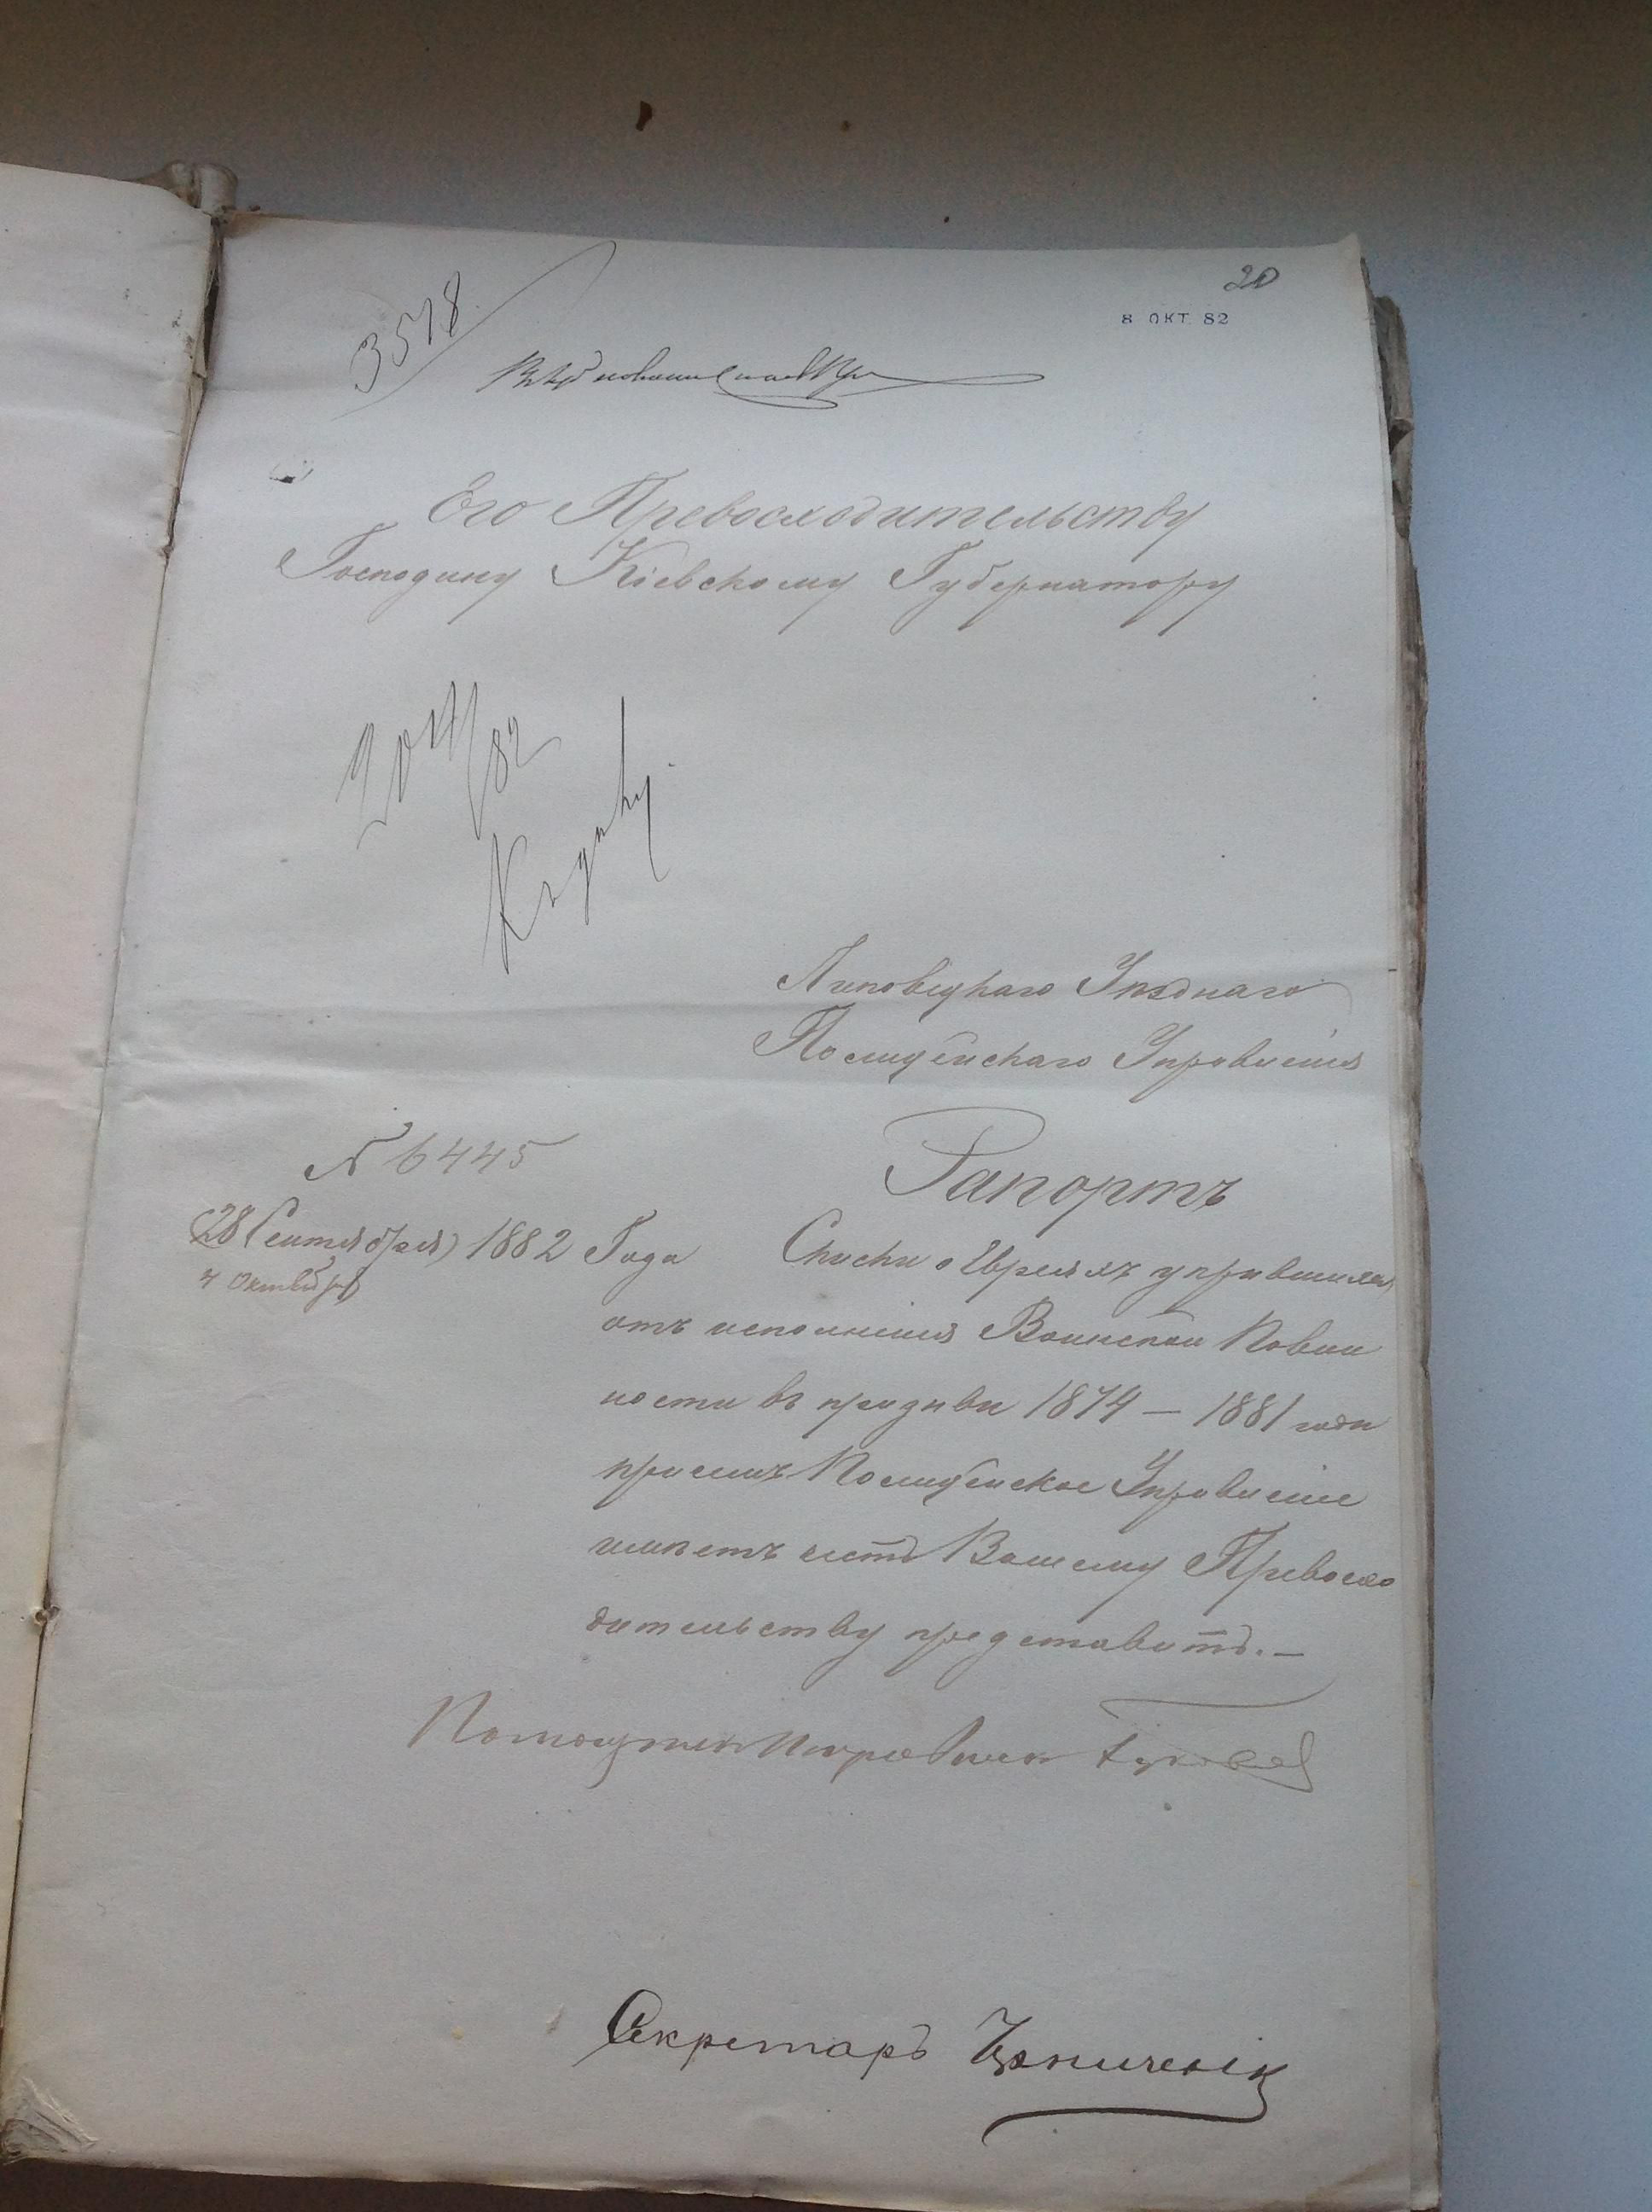 20
8 ОКТ. 82
3578
Его Превосходительству
Господину Кіевскому Губернатору
9 окт/82
Къ дѣлу
Липовецкаго Уѣзднаго
Полицейскаго Управленія
Рапортъ
№ 6445
(28 Сентября) 1882 Года
4 Октября
Списки о Евреяхъ
отъ исполненія Воинской Повин
ности въ призывы 1874 – 1881 годы
Полицейское Управленіе
имѣетъ честь Вашему Превосхо
дительству представить. –
Помощникъ Исправника
Секретарь